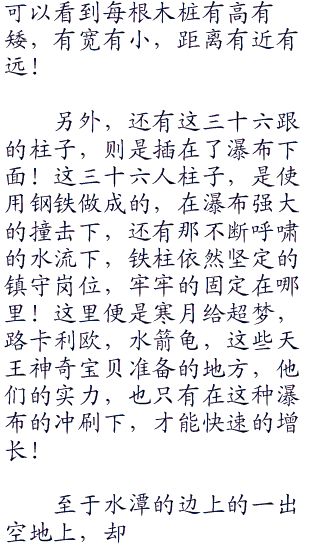 可以看到每根木桩有高有
矮，有宽有小，距离有近有
远！
另外，还有这三十六跟
的柱子，则是插在了瀑布下
面！这三十六人柱子，是使
用钢铁做成的，在瀑布强大
的撞击下，还有那不断呼啸
的水流下，铁柱依然坚定的
镇守岗位，牢牢的固定在哪
里！这里便是寒月给超梦，
路卡利欧，水箭龟，这些天
王神奇宝贝准备的地方，他
们的实力，也只有在这种瀑
布的冲刷下，才能快速的增
长！
至于水潭的边上的一出
空地上，却